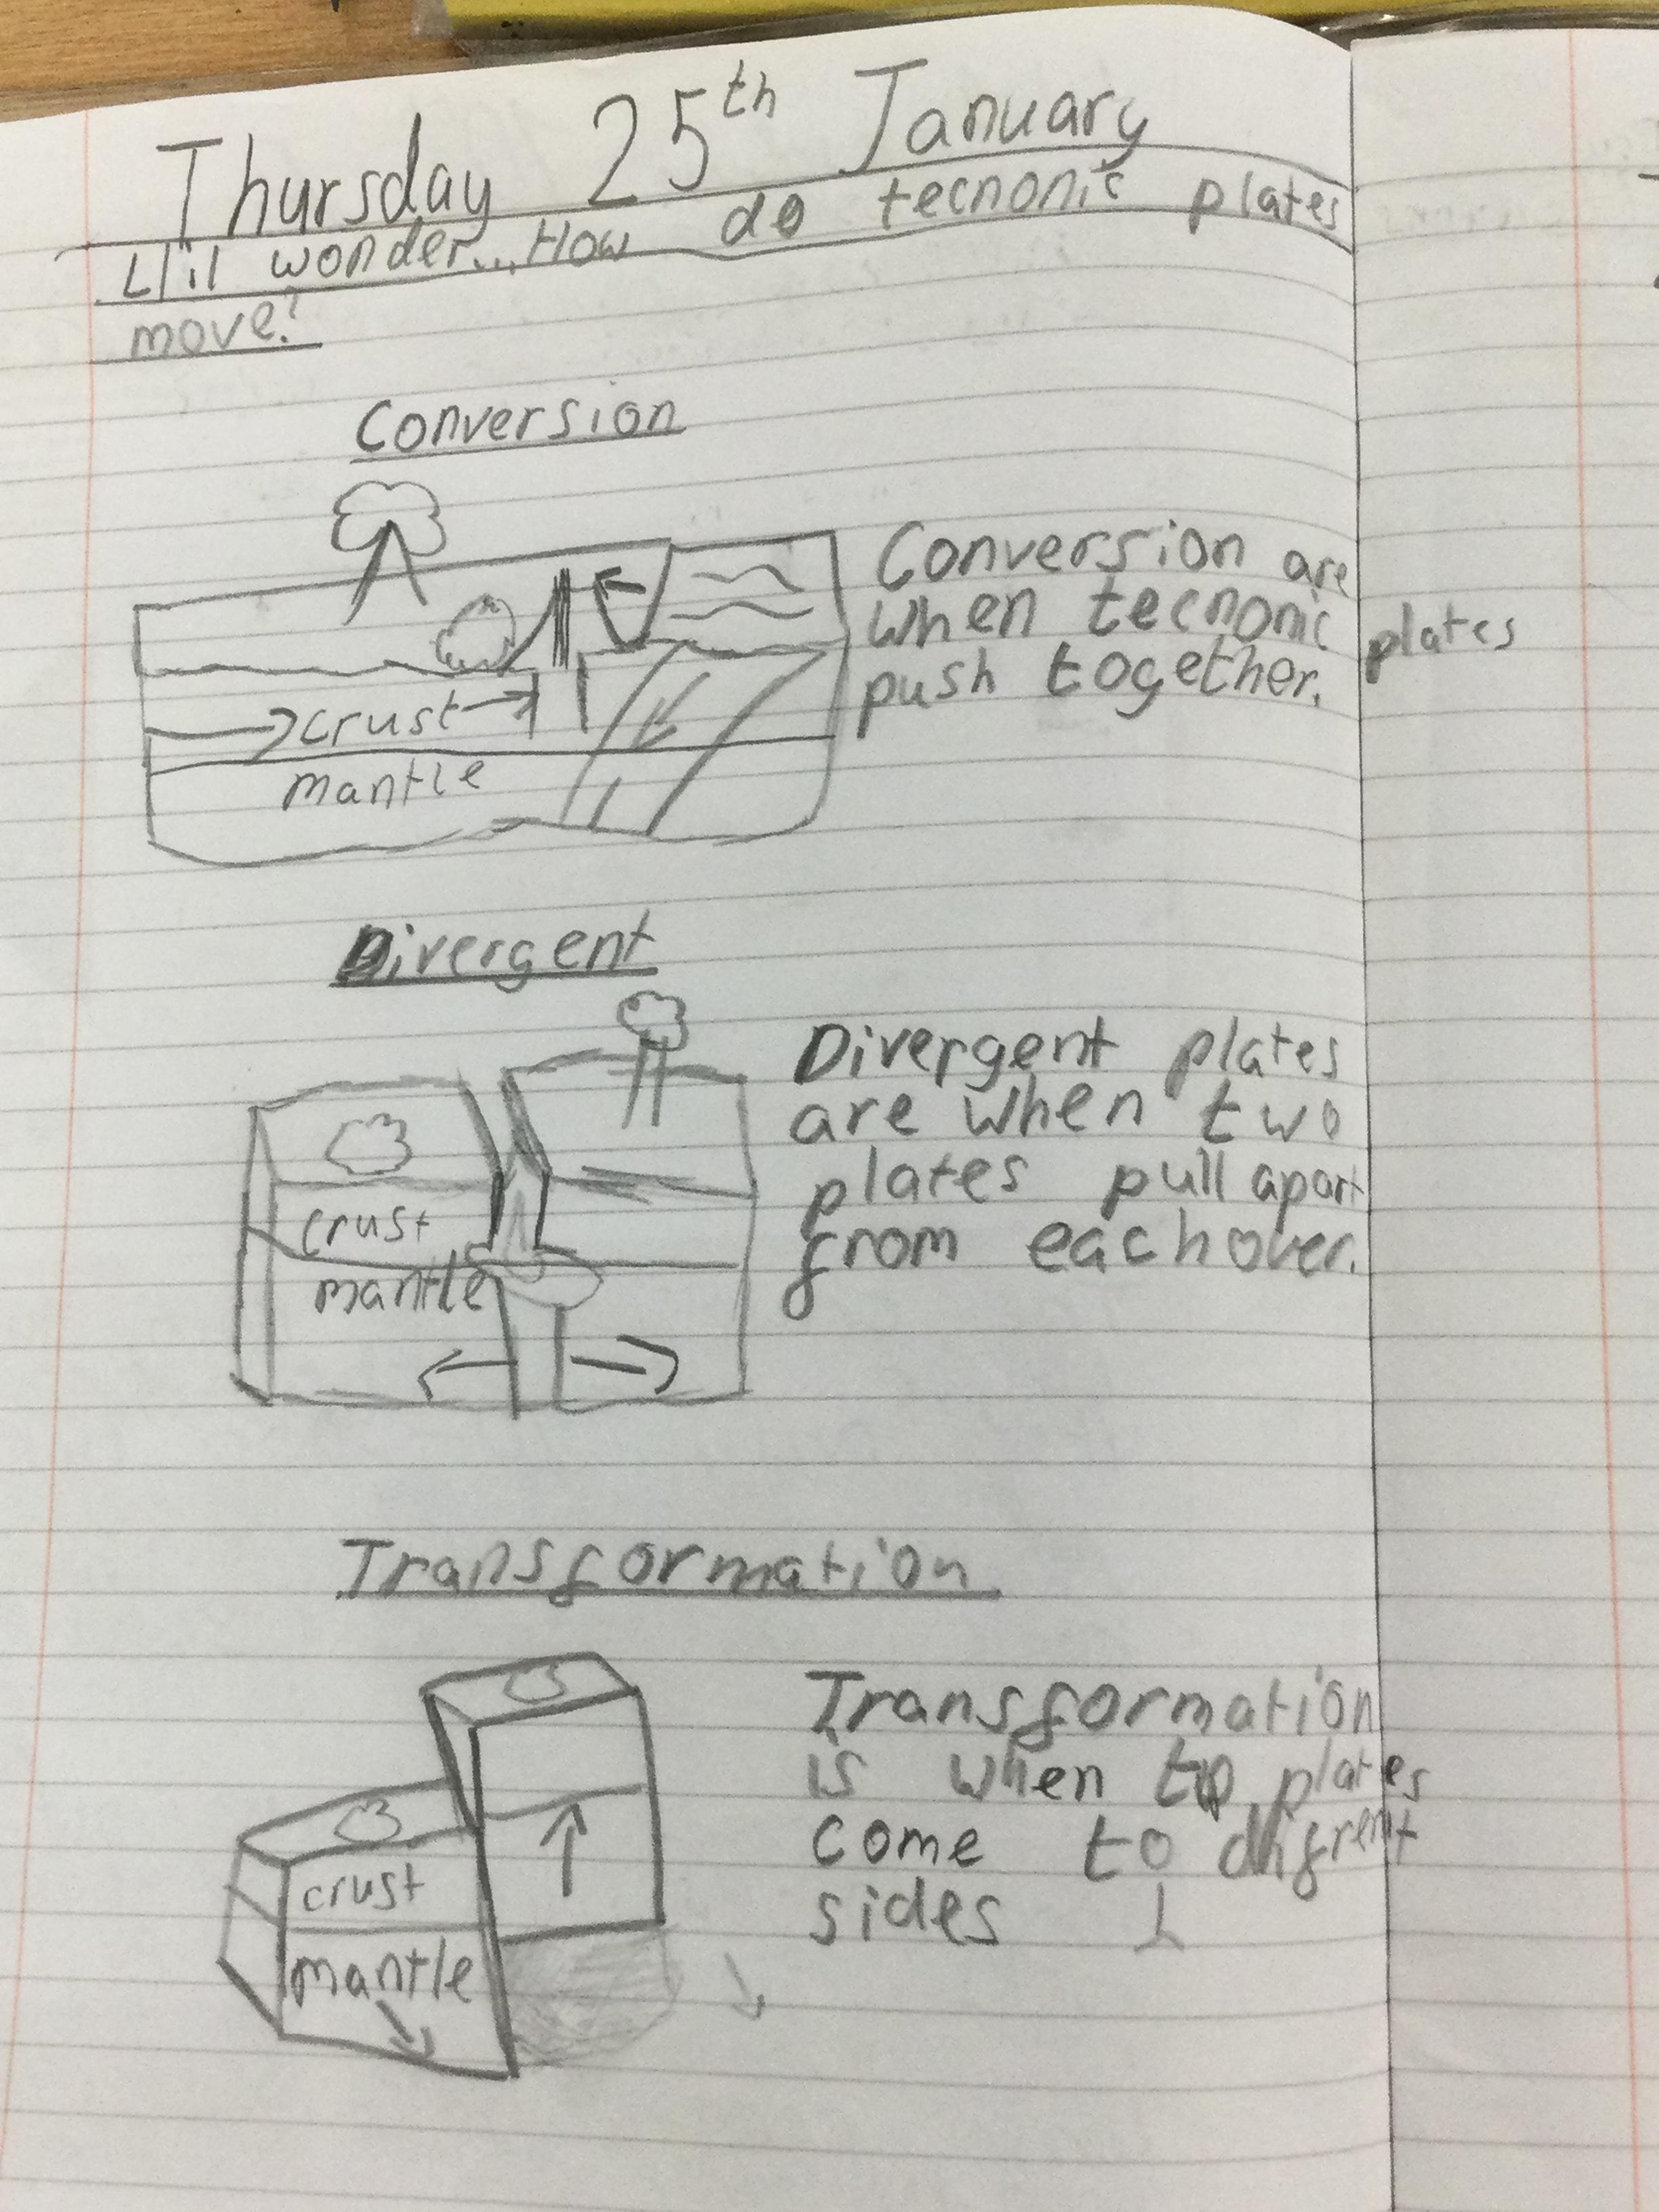 Thursday 25th January
L/il wonder... How do tecnonic plates
move?
Conversion
Conversion are
when tecnonic plates
push together.
crust
mantle
Divergent
Divergent plates
are when two
plates pull apart
from each over.
crust
mantle
Transformation
Transformation
is when to plates
come to difrent
sides
crust
mantle